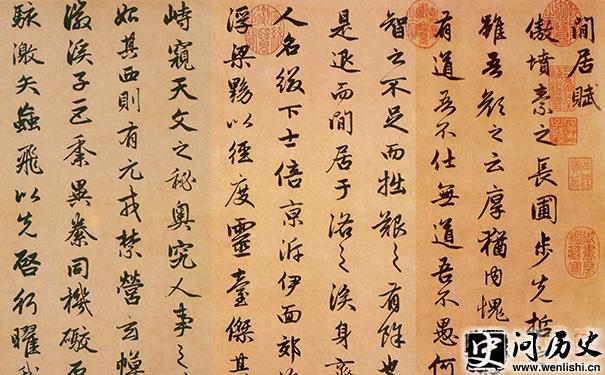 閒居賦
傲墳素之長圃步先哲
雖吾顏之云厚猶内愧
有道吾不仕無道吾不愚何
智之不足而拙艱之有餘也
是退而閒居于洛之涘身齊
人名綴下士倍京泝伊面郊
浮梁黝以徑度靈臺傑其
峙窺天文之秘奥究人事之
如其西則有元戎禁營玄幙
徽溪子巨黍異絭同機礮石
駭激矢蝱飛以先啓行曜我
史问历史
www.wenlishi.cn